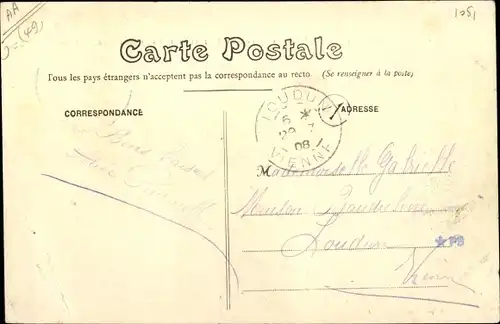 AA
1051
(49)
Carte Postale
Tous les pays étrangers n'acceptent pas la correspondance au recto. (Se renseigner à la poste)
CORRESPONDANCE
ADRESSE
LOUDUN
6 *
29 7
08
VIENNE
Bons baisers
Mademoiselle Gabrielle
Maison
Loudun
PS
Vienne